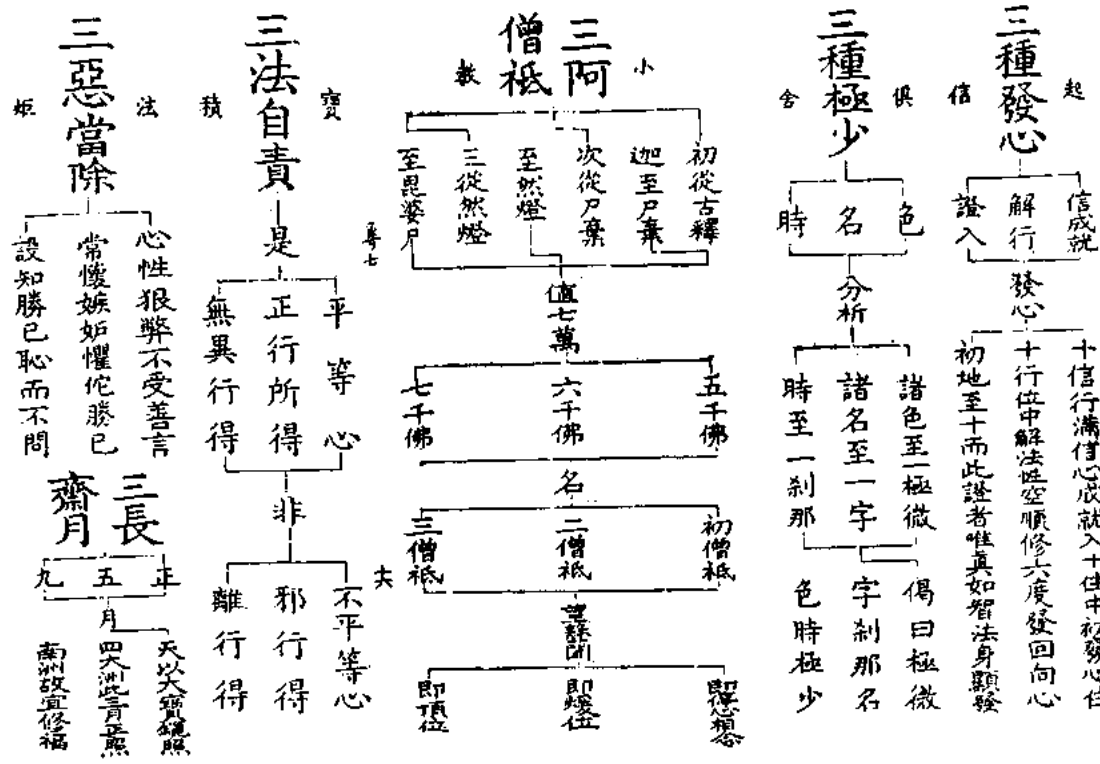 起信
三種發心
信成就
解行
證入
發心
十信行滿信心成就入十住中初發心住
十行位中解法性空順修六度發回向心
初地至十而此證者唯真如智法身顯發
俱舍
三種極少
色
名
時
分析
諸色至一極微
諸名至一字
時至一剎那
偈曰極微
字剎那名
色時極少
小教
三阿
僧祇
初從古釋
迦至尸棄
次從尸棄
至然燈
三從然燈
至毘婆尸
值七萬
五千佛
六千佛
七千佛
名
初僧祇
二僧祇
三僧祇
即煖位
即頂位
寶積
三法自責
是
平等心
正行所得
無異行得
非
不平等心
邪行得
離行得
法
三惡當除
心性狠弊不受善言
常懷嫉妬懼佗勝己
設知勝己恥而不問
三長
齋月
正
五
九
月
天以大寶鏡照
四大洲此三月正照
南洲故宜修福